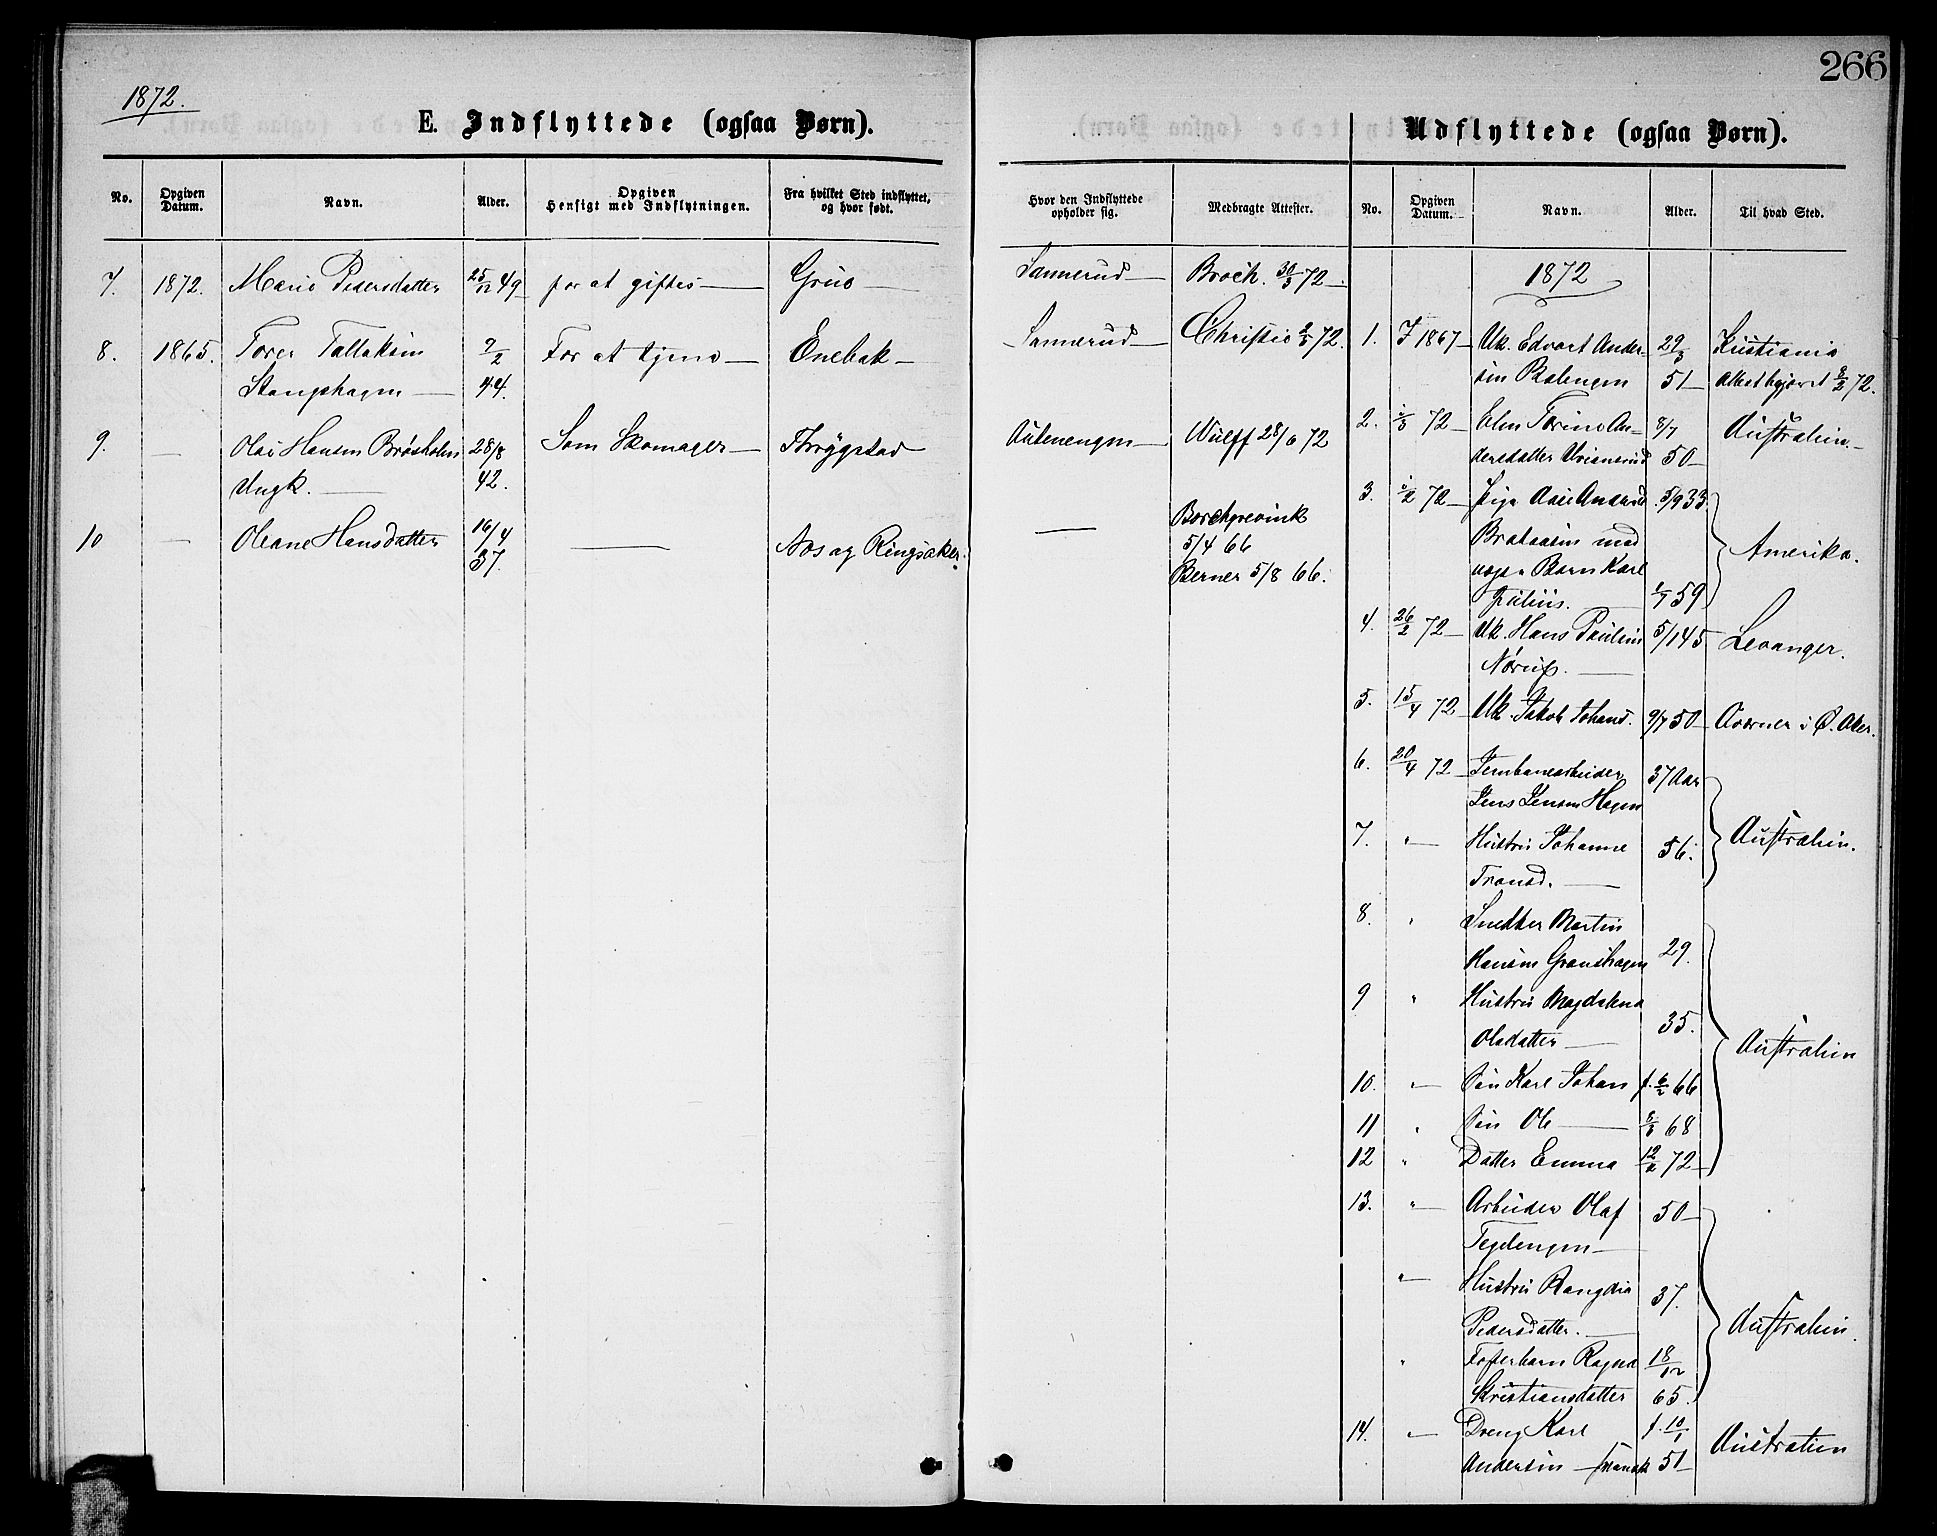 266
1872.
E. Indflyttede (ogsaa Børn).
No. Opgiven Datum. Navn. Alder. Opgiven Hensigt med Indflytningen. Fra hvilket Sted indflyttet, og hvor født.
Hvor den Indflyttede opholder sig. Medbragte Attester.
7. 1872. Marie Pedersdatter 25/12 49 for at giftes — Grue — Sannerud — Broch. 30/3 72 —
8. 1865. Torer Tallaksen 9/2 For at tjene — Enebak — Sannerud — Christie 2/5 72.
Stangshagen — 44.
9. — Olai Hansen Brøsholen 28/8 Som Skomager — Thrygstad Wulff 28/6 72
Ungk. — 42.
10 — Oleane Hansdatter 16/4 — Nes og Ringsaker. — Borchgrevink
37. 5/4 66
Berner 5/8 66.
Udflyttede (ogsaa Børn).
No. Opgiven Datum. Navn. Alder. Til hvad Sted.
1872
1. 1867 — Uk. Edvart Ander- 29/3 Kristiania
sen 51 — 8/2 72.
2. 72 — Ano- 8/7 Australien. —
dersdatter 50 —
3. 72 — Pige 5/9 33.
med Amerika.
Barn Karl
Julius. — 1/7 59
4. 26/2 72 — Uk. Hans Paulsen 5/1 45 Levanger.
—
5. 15/4 72 — Uk. Jakob Johans. 9/7 50 — i Ø. Aker.
6. 20/4 72 — Jernbanearbeider 37 Aar
Jens Jensen Hagen Australien.
7. " — Hustru Johanne 36.
Transd. —
8. " Snedker Martin 29.
Hansen Granshagen
9 " Hustru Magdalena 35.
Olsdatter — Australien
10. " — Søn Karl Johan f. 6/2 66
11 " Søn Ole — 68
12 " Datter Emma 12/2 72 —
13. " — Arbeider Olaf 50 —
Tegelengen —
" — Hustru Rangdia 37.
Pedersdatter. — Australien.
" Fosterbarn Ragna 18/12
Kristiansdatter 65.
14. " — Dreng Karl f. 10/1 Australien
Andersen — 51 —